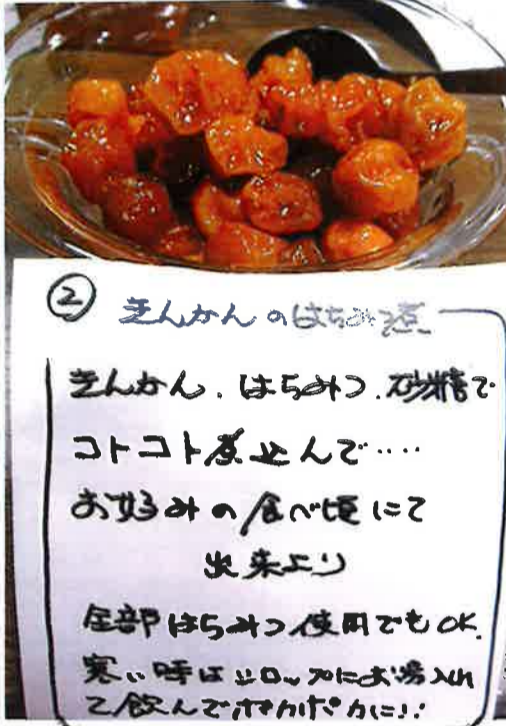 ② きんかんのはちみつ煮
きんかん、はちみつ、砂糖で
コトコト煮込んで‥‥
お好みの食べ頃にて
出来上り
全部はちみつ使用でもOK.
寒い時はシロップにお湯入れ
て飲んでポカポカに!!